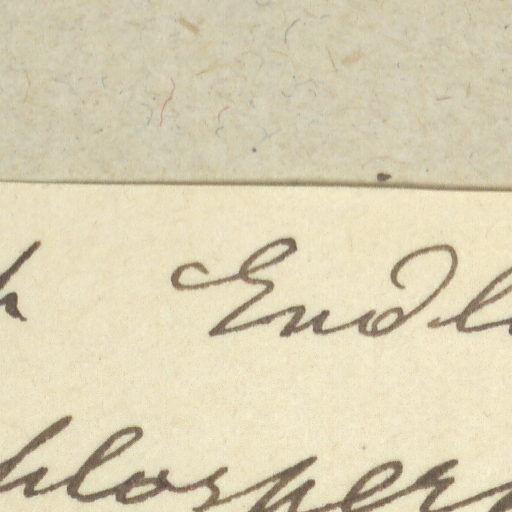 h Endl
hlosper